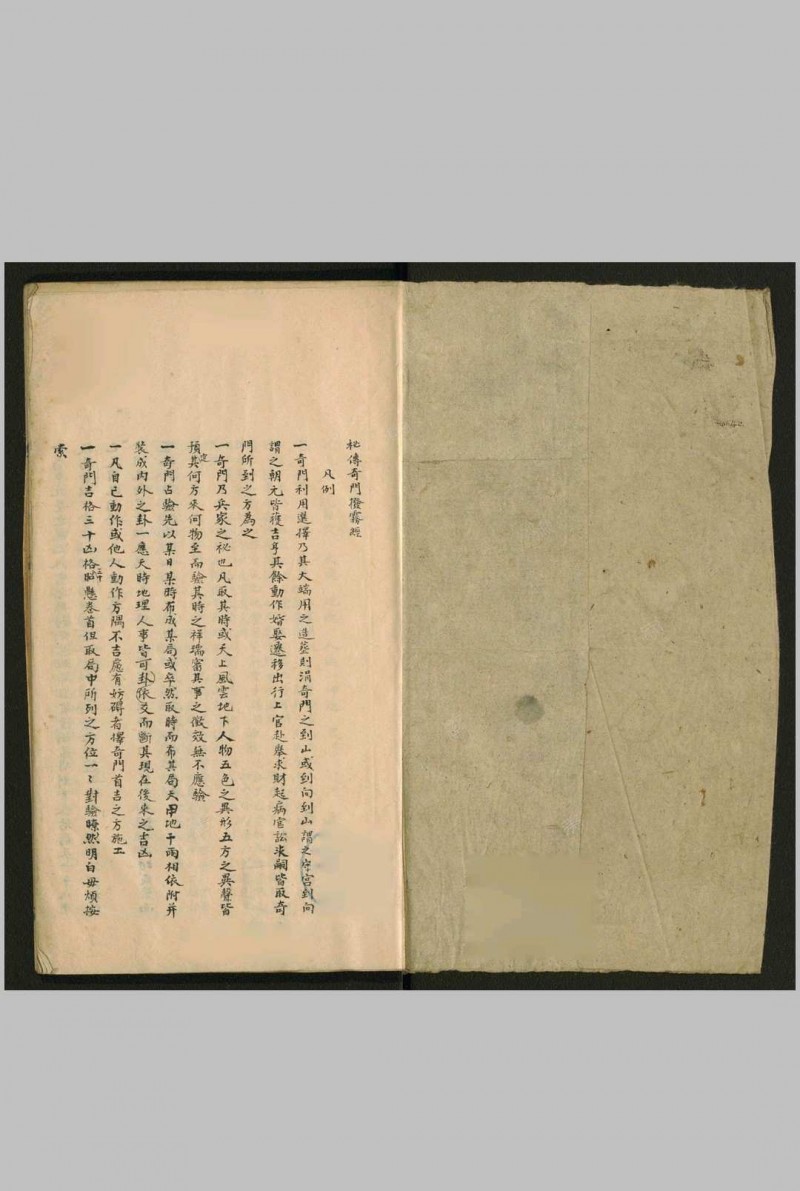 秘傳奇門撥霧經
凡例
一奇門利用選擇乃其大端用之造塟則涓奇門之到山或到向到山謂之守宮到向
謂之朝元皆獲吉亨其餘動作婚娶遷移出行上官赴舉求財起病官訟求嗣皆取奇
門所到之方為之
一奇門乃兵家之祕也凡取其時或天上風雲地下人物五色之異形五方之異聲皆
預定其何方來何物至而驗其時之祥瑞審其事之徵效無不應驗
一奇門占驗先以某日某時布成某局或卒然取時而布其局天甲地干兩相依附并
裝成內外之卦一應天時地理人事皆可依卦爻而斷其現在後來之吉凶
一凡自己動作或他人動作方隅不吉處有妨碍者擇奇門首吉之方施工
一奇門吉格三十凶格三十昭懸卷首但取局中所列之方位一〻對驗暸然明白毋煩按
索